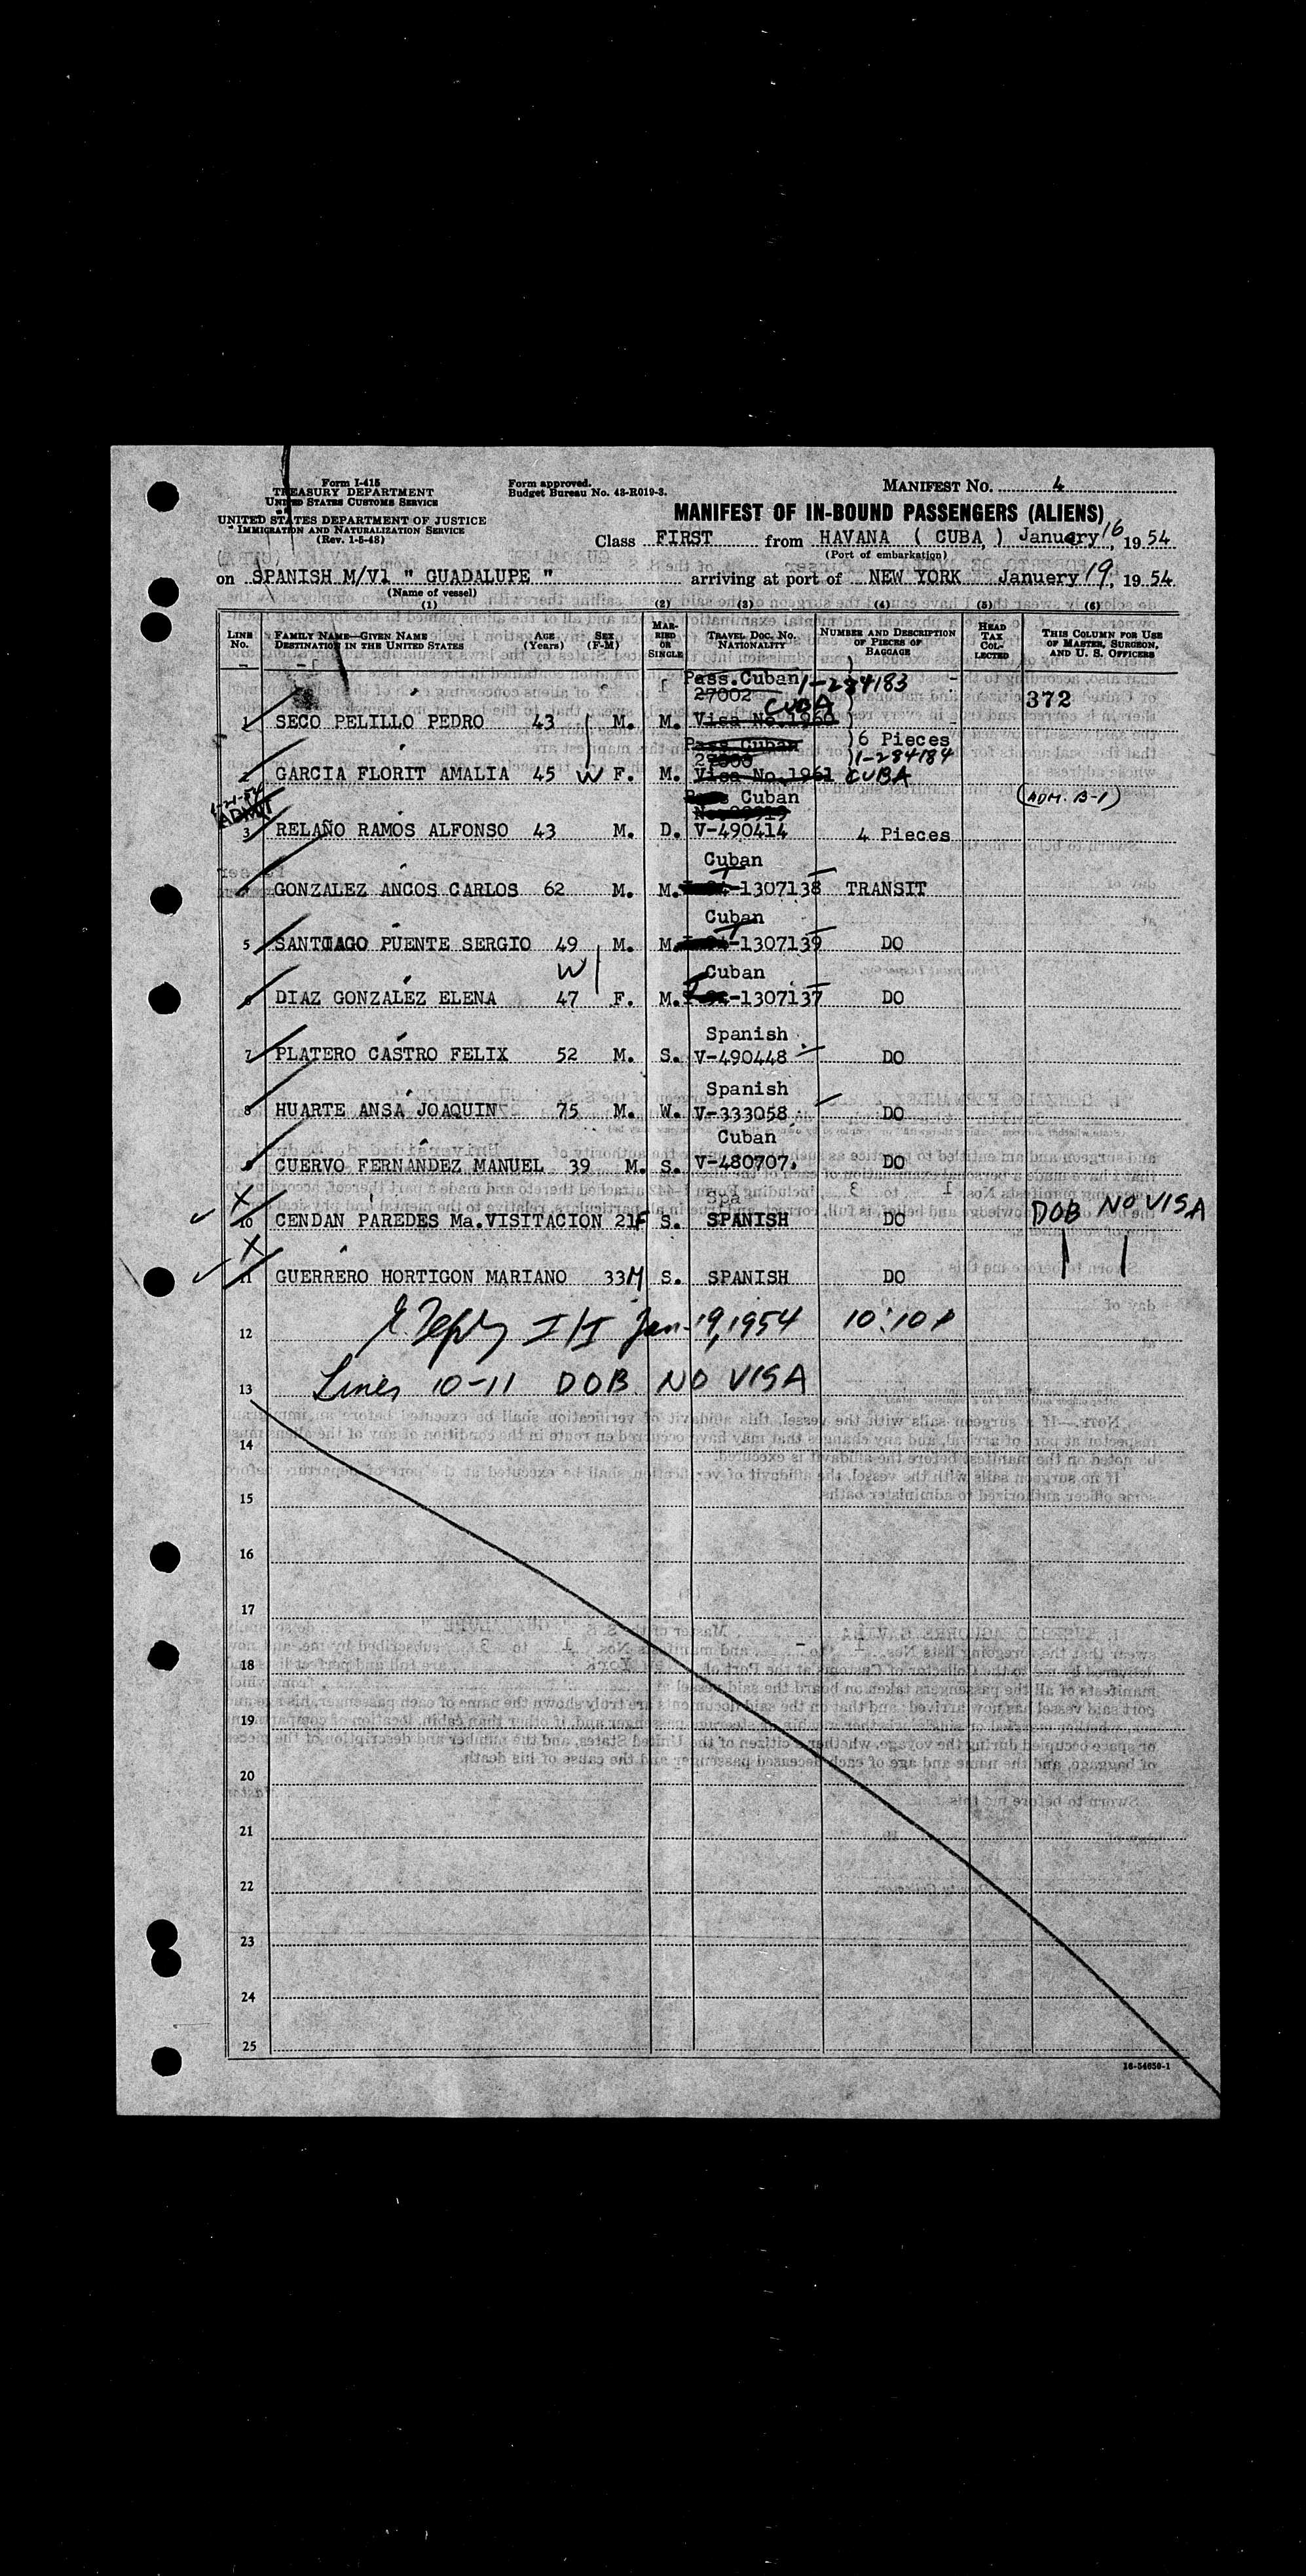 Form I-415
TREASURY DEPARTMENT
UNITED STATES CUSTOMS SERVICE
UNITED STATES DEPARTMENT OF JUSTICE
IMMIGRATION AND NATURALIZATION SERVICE
(Rev. 1-5-48)
Form approved.
Budget Bureau No. 43-R019-3.
MANIFEST No. 4
MANIFEST OF IN-BOUND PASSENGERS (ALIENS)
Class FIRST from HAVANA ( CUBA, ) January 16, 1954
(Port of embarkation)
on SPANISH M/V1 " GUADALUPE " arriving at port of NEW YORK Januery 19, 1954
(Name of vessel)
(1) (2) (3) (4) (5) (6)
LINE No. FAMILY NAME—GIVEN NAME DESTINATION IN THE UNITED STATES AGE (Years) SEX (F-M) MARRIED OR SINGLE TRAVEL DOC. NO. NATIONALITY NUMBER AND DESCRIPTION OF PIECES OF BAGGAGE HEAD TAX COLLECTED THIS COLUMN FOR USE OF MASTER, SURGEON, AND U. S. OFFICERS
Pass. Cuban 1-284183
27002 CUBA 372
1 SECO PELILLO PEDRO 43 M. M. Visa No. 1960
Pass. Cuban 6 Pieces
1-284184
2 GARCIA FLORIT AMALIA 45 W F. M. Visa No. 1961 CUBA
ADMIT Cuban (ADM. B-1)
3 RELAÑO RAMOS ALFONSO 43 M. D. V-490414 4 Pieces
Cuban
GONZALEZ ANCOS CARLOS 62 M. M. -1307138 TRANSIT
Cuban
5 SANTIAGO PUENTE SERGIO 49 M. M. -1307139 DO
W Cuban
6 DIAZ GONZALEZ ELENA 47 F. M. -1307137 DO
Spanish
7 PLATERO CASTRO FELIX 52 M. S. V-490448 DO
Spanish
8 HUARTE ANSA JOAQUIN 75 M. W. V-333058 DO
Cuban
CUERVO FERNANDEZ MANUEL 39 M. S. V-480707. DO
X Spa
10 CENDAN PAREDES Ma. VISITACION 21F S. SPANISH DO DOB NO VISA
X
11 GUERRERO HORTIGON MARIANO 33M S. SPANISH DO
12 I/I Jan. 19, 1954 10:10
13 Lines 10-11 DOB NO VISA
14
15
16
17
18
19
20
21
22
23
24
25
16-54650-1